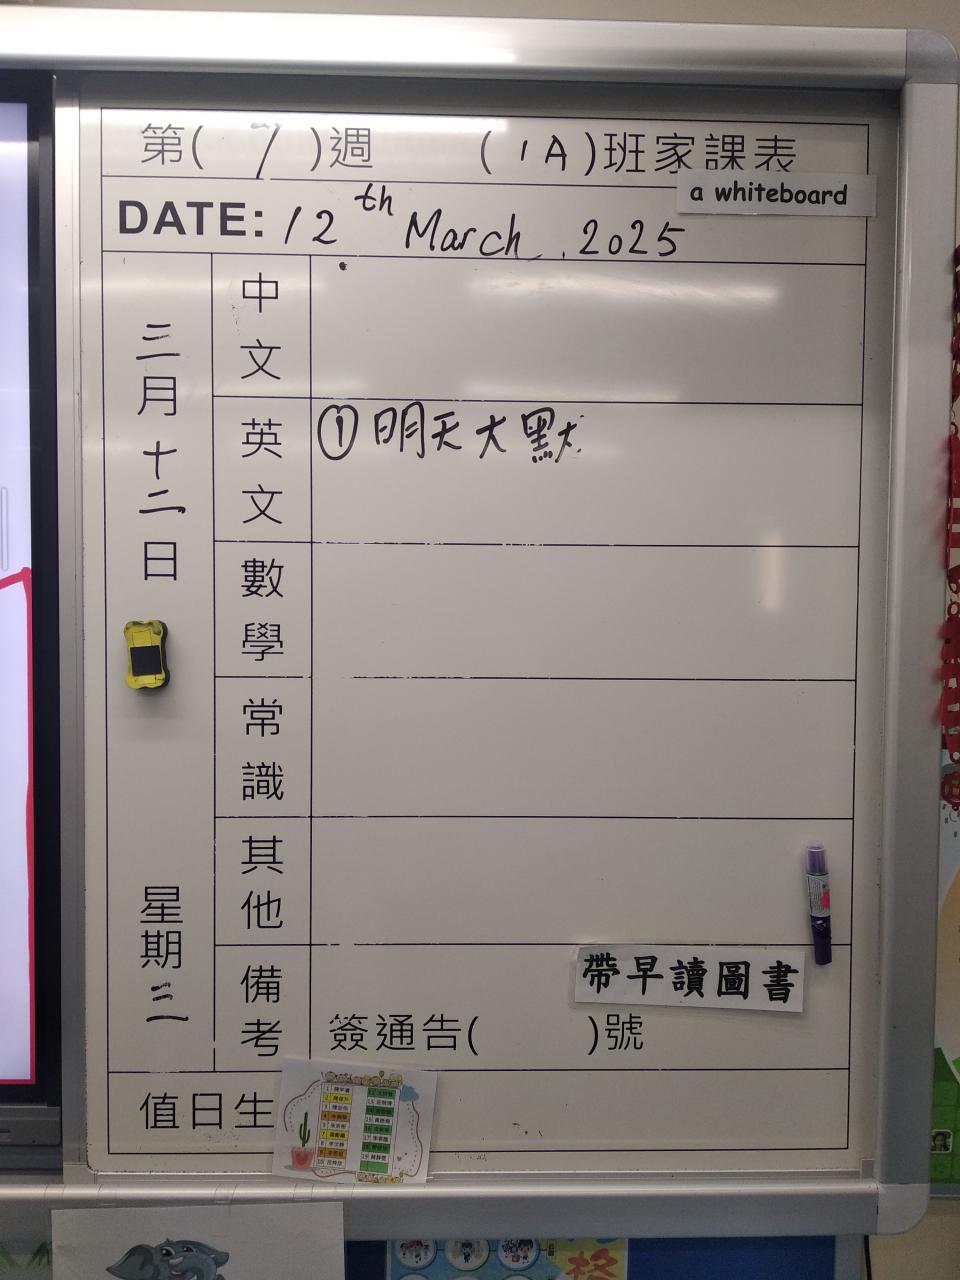 第( 7 )週 ( 1A )班家課表
a whiteboard
DATE: 12th March, 2025
三月十二日
星期三
中文
英文
① 明天大默
數學
常識
其他
備考
帶早讀圖書
簽通告( )號
值日生